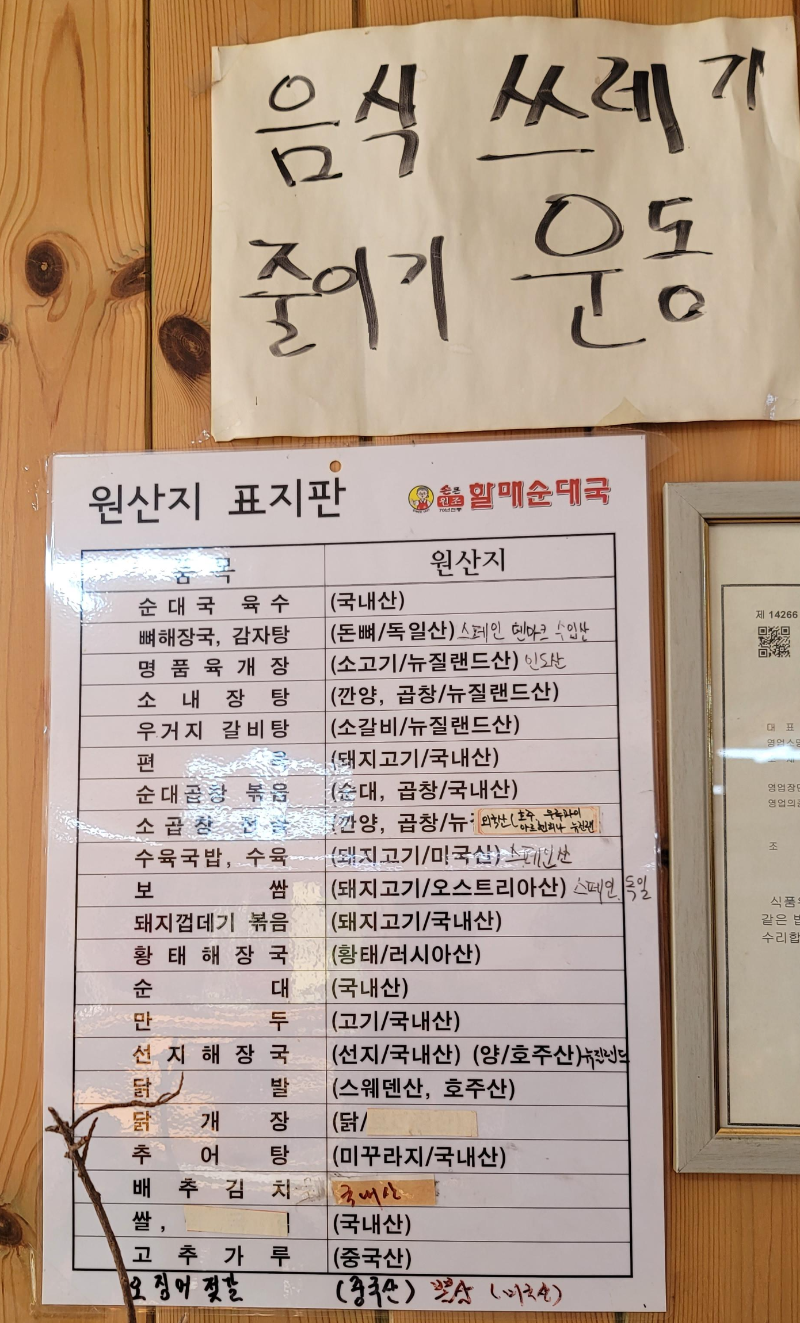 음식 쓰레기
줄이기 운동
원산지 표지판
원조 할매순대국
품목 원산지
순대국 육수 (국내산)
뼈해장국, 감자탕 (돈뼈/독일산) 스페인 덴마크 수입산
명품육개장 (소고기/뉴질랜드산) 인도산
소내장탕 (깐양, 곱창/뉴질랜드산)
우거지 갈비탕 (소갈비/뉴질랜드산)
편육 (돼지고기/국내산)
순대곱창 볶음 (순대, 곱창/국내산)
소곱창 전골 (깐양, 곱창/뉴 외국산(호주, 우루과이
아르헨티나 뉴질랜
수육국밥, 수육 (돼지고기/미국산) 스페인산
보쌈 (돼지고기/오스트리아산) 스페인, 독일
돼지껍데기 볶음 (돼지고기/국내산)
황태해장국 (황태/러시아산)
순대 (국내산)
만두 (고기/국내산)
선지해장국 (선지/국내산) (양/호주산) 뉴질랜드
닭발 (스웨덴산, 호주산)
닭개장 (닭/
추어탕 (미꾸라지/국내산)
배추김치 국내산
쌀, (국내산)
고추가루 (중국산)
오징어젓갈 (중국산) (미국산)
제 14266
대 표
영업소명
소 재
영업장면
영업의종
조
식품위
같은 법
수리합